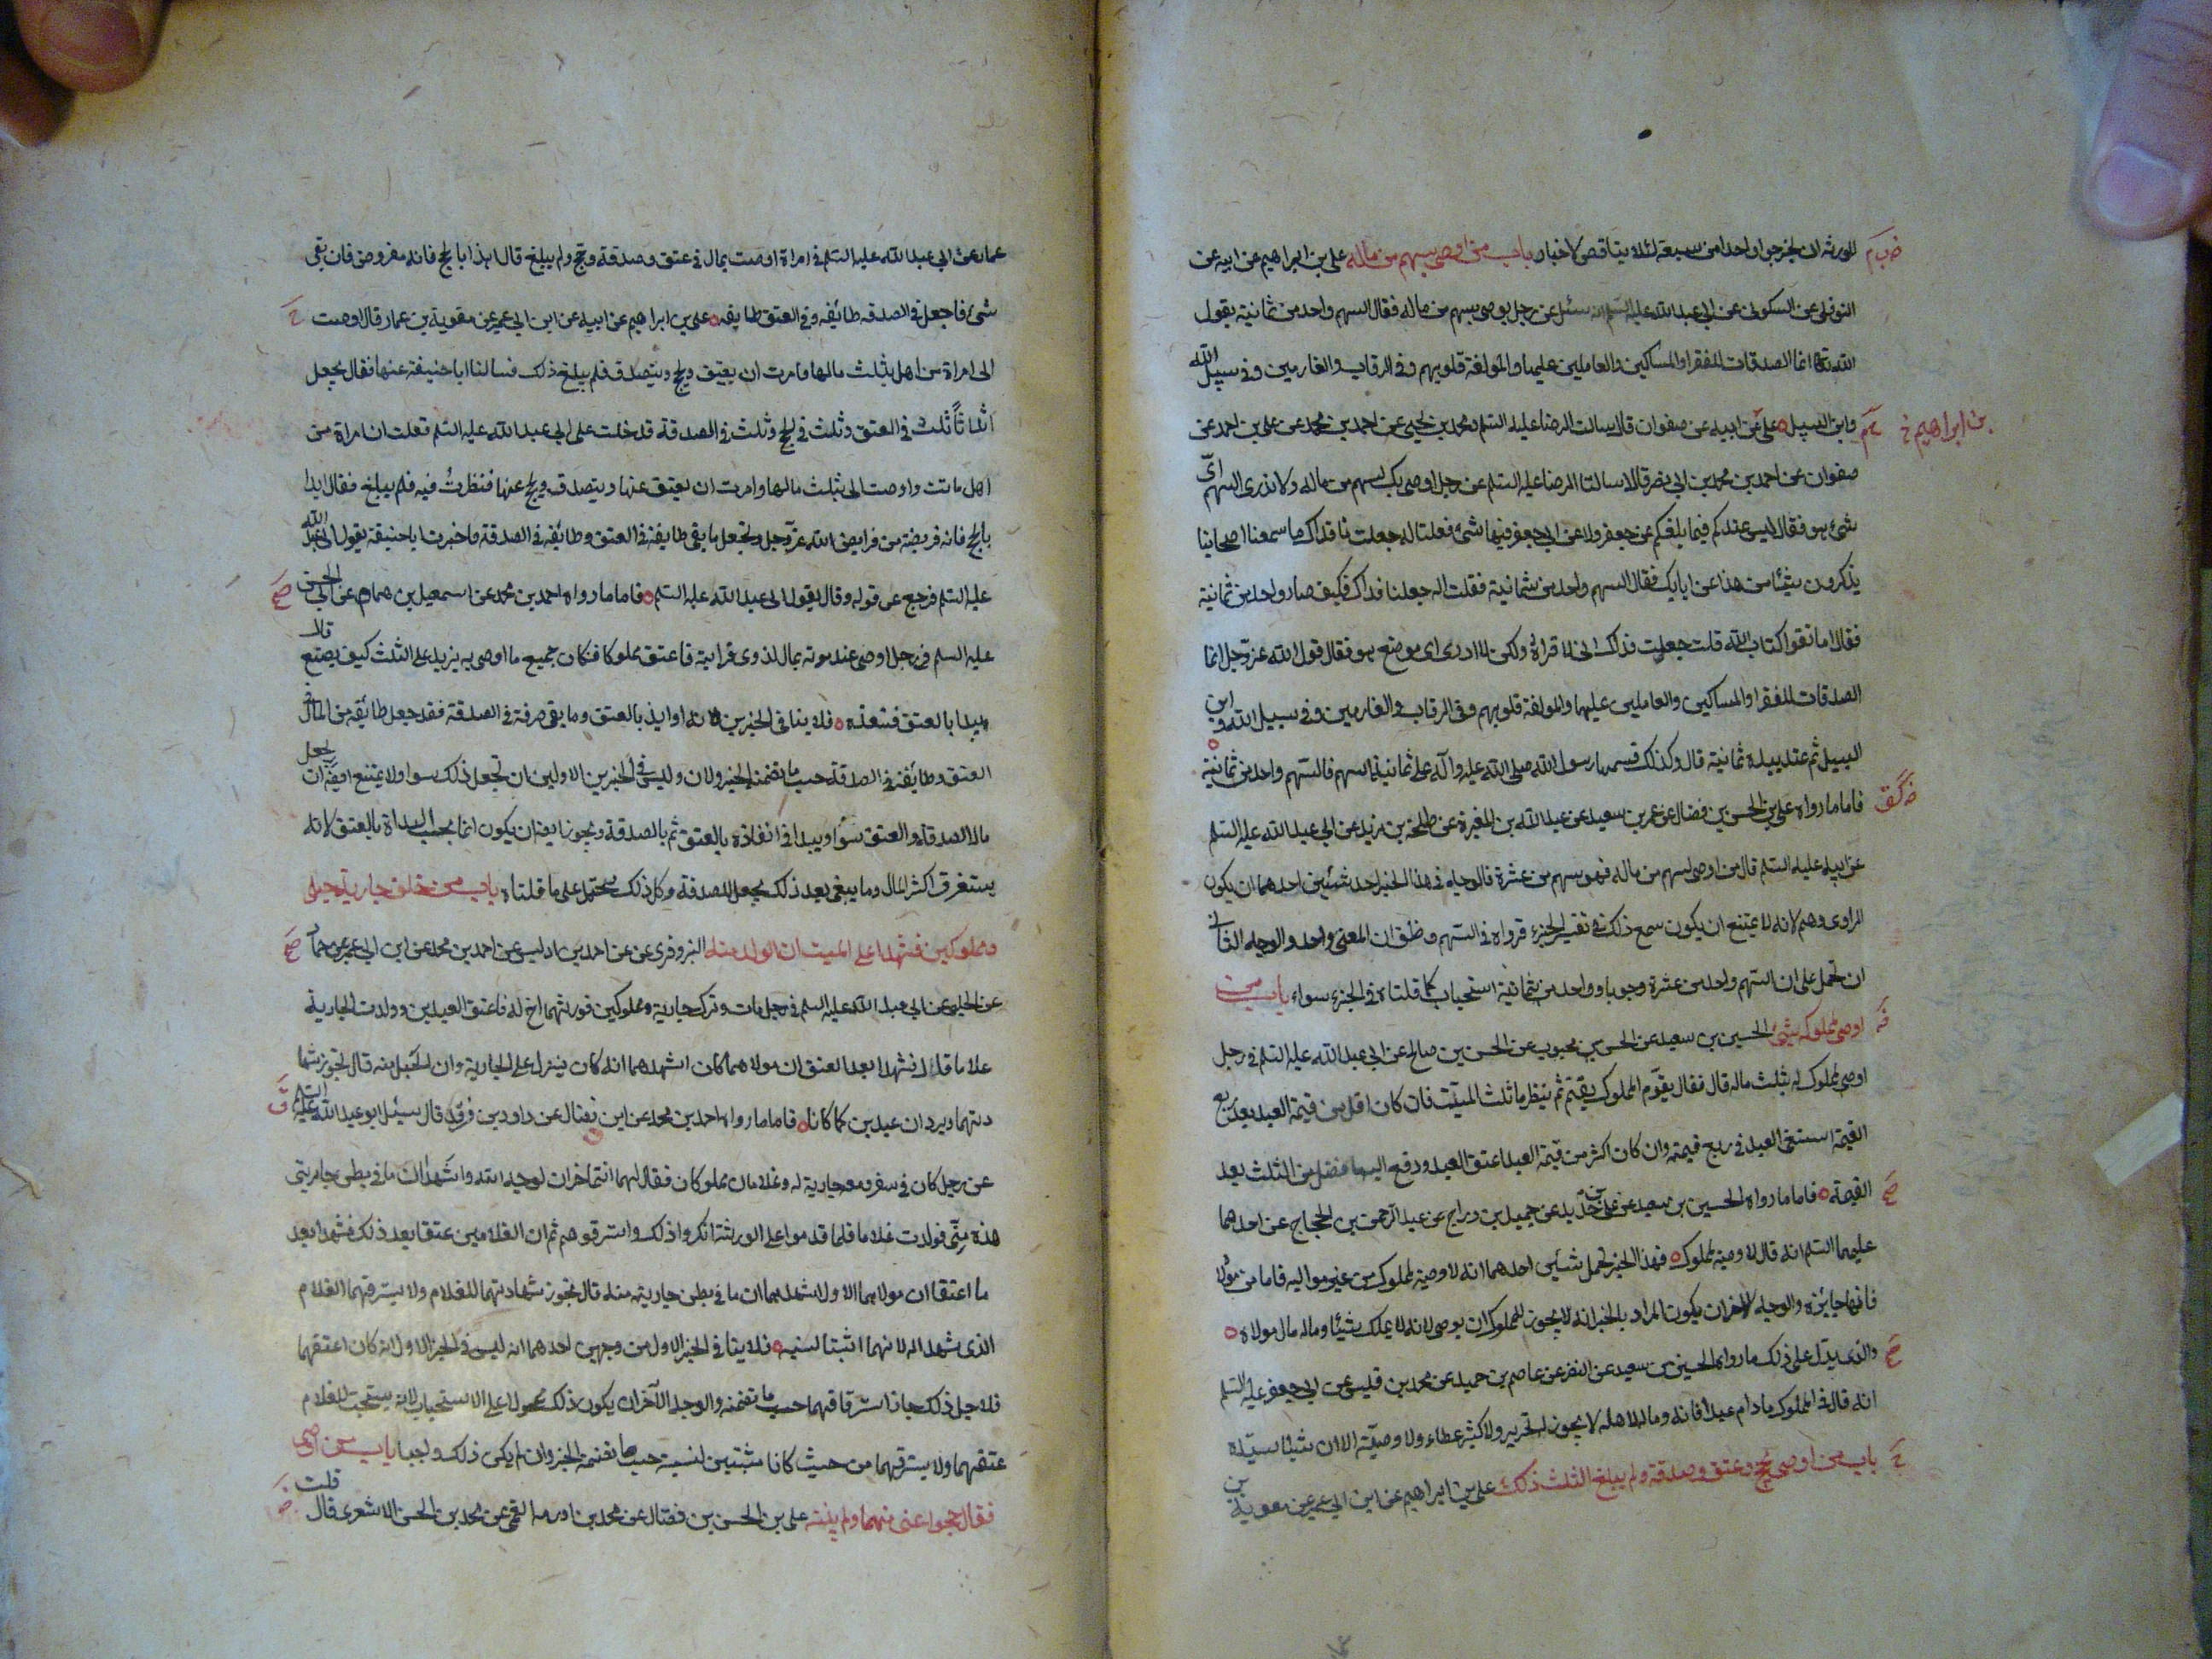 للورثه ان يخرجوا واحدا من سبعة لئلا يتناقص الاخبار باب من اوصى بسهم من ماله على بن ابراهيم عن ابيه عن
النوفلى عن السكونى عن ابى عبد الله عليه السلم انه سئل عن رجل يوصى بسهم من ماله فقال السهم واحد من ثمانية يقول
الله تعالى انما الصدقات للفقرا والمساكين والعاملين عليها والمولفة قلوبهم وفى الرقاب والغارمين وفى سبيل الله
وابن السبيل على عن ابيه عن صفوان قال سالت الرضا عليه السلم ومحمد بن يحيى عن احمد بن محمد عن على بن احمد عن
بن ابراهيم خ
صفوان عن احمد بن محمد بن ابى نصر قالا سالنا الرضا عليه السلم عن رجل اوصى لك بسهم من ماله ولا ندرى السهم اى
شئ هو فقال ليس عندكم فيما بلغكم عن جعفر ولا عن ابى جعفر فيها شئ فعلنا له جعلنا فداك ما سمعنا اصحابنا
يذكرون شيئا من هذا عن ابايك فقال السهم واحد من ثمانية فقلت له جعلنا فداك فكيف صار واحد من ثمانية
فقال اما تقرا كتاب الله قلت جعلت فداك انى لا قراه ولكن لا ادرى اى موضع هو فقال قول الله عز وجل انما
الصدقات للفقرا والمساكين والعاملين عليها والمولفة قلوبهم وفى الرقاب والغارمين وفى سبيل الله وابن
السبيل ثم عقد بيده ثمانية قال وكذلك قسمها رسول الله صلى الله عليه وآله على ثمانية اسهم فالسهم واحد من ثمانية
فاما ما رواه على بن الحسن بن فضال عن عمرو بن سعيد عن عبد الله بن المغيرة عن طلحة بن زيد عن ابى عبد الله عليه السلم
عن ابيه عليه السلم قال من اوصى بسهم من ماله فهو سهم من عشرة فالوجه فى هذا الخبر احد شيئين احدهما ان يكون
الراوى وهم لانه لا يمتنع ان يكون سمع ذلك فى تفسير الجزء فرواه فى السهم وظن ان المعنى واحد والوجه الثانى
ان تحمل على ان السهم واحد من عشرة وجوبا وواحد من ثمانية استحبابا كما قلناه فى الجزء سواء باب من
اوصى لمملوكه بشئ الحسين بن سعيد عن الحسن بن محبوب عن الحسن بن صالح عن ابى عبد الله عليه السلم فى رجل
اوصى لمملوك له بثلث ماله قال فقال يقوم المملوك بقيمة ثم ينظر ما ثلث الميت فان كان اقل من قيمة العبد بقدر ربع
القيمة استسعى العبد فى ربع قيمته وان كان اكثر من قيمة العبد اعتق العبد ودفع اليه ما فضل من الثلث بعد
القيمة فاما ما رواه الحسين بن سعيد عن على بن حديد عن جميل بن دراج عن عبد الرحمن بن الحجاج عن احدهما
عليهما السلم انه قال لا وصية لمملوك فهذا الخبر تحمل شيئين احدهما انه لا وصية لمملوك من غير مواليه فاما من مولا
فانها جايزه والوجه الاخر ان يكون المراد بالخبر انه لا يجوز للمملوك ان يوصى لانه لا يملك شيئا وماله مال مولاه
والذى يدل على ذلك ما رواه الحسين بن سعيد عن النضر عن عاصم بن حميد عن محمد بن قيس عن ابى جعفر عليه السلم
انه قال فى المملوك مادام عبدا فانه وماله لاهله لا يجوز له تحرير ولا كثير عطاء ولا وصية الا ان يشا سيده
باب من اوصى بحج وعتق وصدقة ولم يبلغ الثلث ذلك على بن ابراهيم عن ابن ابى عمير عن معوية بن
عمار عن ابى عبد الله عليه السلم فى امراة اوصت بمال فى عتق وصدقة وحج ولم يبلغ قال ابدا بالحج فانه مفروض فان بقى
شئ فاجعل فى الصدقه طائفه وفى العتق طايفه على بن ابراهيم عن ابيه عن ابن ابى عمير عن معوية بن عمار قال اوصت
الى امراة من اهلى بثلث مالها وامرت ان يعتق ويحج ويتصدق فلم يبلغ ذلك فسالنا ابا حنيفة عنها فقال يجعل
اثلاثاً ثلث فى العتق وثلث فى الحج وثلث فى الصدقة فدخلت على ابى عبد الله عليه السلم فقلت ان امراة من
اهلى ماتت واوصت الى بثلث مالها وامرت ان يعتق عنها ويتصدق ويحج عنها فنظرت فيه فلم يبلغ فقال ابدا
بالحج فانه فريضة من فرايض الله عز وجل وتجعل ما بقى طايفة فى العتق وطائفة فى الصدقة فاخبرت ابا حنيفة بقول ابى عبد الله
عليه السلم فرجع عن قوله وقال بقول ابى عبد الله عليه السلم فاما ما رواه احمد بن محمد عن اسمعيل بن همام عن ابى الحسن
عليه السلم فى رجل اوصى عند موته بمال لذوى قرابته فاعتق مملوكا فكان جميع ما اوصى به يزيد على الثلث كيف يصنع قال
يبدا بالعتق فينفذه فلا ينافى الخبرين لانه اوايذ بالعتق وما بقى صرفة فى الصدقة فقد جعل طائفة من المال فى
العتق وطائفة فى الصدقة حسب ما تضمنه الخبر ولان وليس فى الخبرين الاولين ان تجعل ذلك سوا ولا يمتنع ايضا ان يجعل
مالا الصدقة والعتق سوا ويبدا فى انفاذه بالعتق ثم بالصدقة ويجوز ايضا ان يكون انما يجب البداة بالعتق لانه
يستغرق اكثر المال وما يبقى بعد ذلك يجعل للصدقة وكل ذلك محتمل على ما قلناه باب من خلف جارية حبلى
ومملوكين فشهدا على الميت ان الولد منه البزوفرى عن احمد بن ادريس عن احمد بن محمد عن ابن ابى عمير عن حماد
عن الحلبى عن ابى عبد الله عليه السلم فى رجل مات وترك جارية ومملوكين فورثهما اخ له فاعتق العبدين وولدت الجارية
غلاما قال فشهدا بعد العتق ان مولاهما كان اشهدهما انه كان ينزل على الجارية وان الحبل منه قال تجوز شها
دتهما ويردان عبدين كما كانا فاما ما رواه احمد بن محمد عن ابن فضال عن داود بن فرقد قال سئل ابو عبد الله عليه السلم
عن رجل كان فى سفر ومعه جارية له وغلامان مملوكان فقال لهما انتما حران لوجه الله واشهدا ان ما فى بطن جاريتى
هذه منى فولدت غلاما فلما قدموا على الورثة انكروا ذلك واسترقوهم ثم ان الغلامين عتقا بعد ذلك فشهدا بعد
ما اعتقا ان مولاهما الاول اشهدهما ان ما فى بطن جاريته منه قال تجوز شهادتهما للغلام ولا يسترقهما الغلام
الذى شهدا له لانهما اثبتا نسبه فلا ينافى الخبر الاول من وجهين احدهما انه ليس فى الخبر الاول انه كان اعتقهما
فلاجل ذلك جاز استرقاقهما حسب ما تضمنه والوجه الآخر ان يكون ذلك محمولا على الاستحباب لانه يستحب للغلام
عتقهما ولا يسترقهما من حيث كانا مثبتين لنسبه حسب ما تضمنه الخبر وان لم يكن ذلك واجبا باب من اوصى
فقال حجوا عنى مبهما ولم يبينه على بن الحسن بن فضال عن محمد بن اورمه القمى عن محمد بن الحسن الاشعرى قال قلت